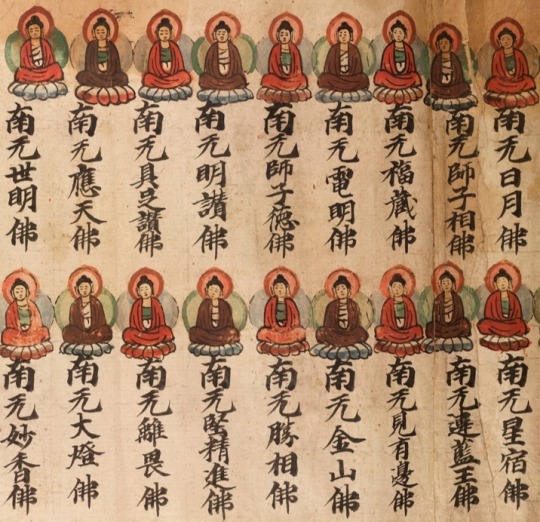 南无日月佛
南无師子相佛
南无福藏佛
南无電明佛
南无師子德佛
南无明讃佛
南无具足讃佛
南无應天佛
南无世明佛
南无星宿佛
南无違藍王佛
南无見有邊佛
南无金山佛
南无勝相佛
南无堅精進佛
南无離畏佛
南无大燈佛
南无妙香佛